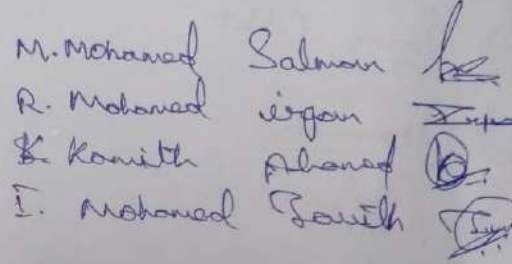 M. Mohamed Salman
R. Mohamed irgan
K. Kamith Ahamed
I. Mohamed